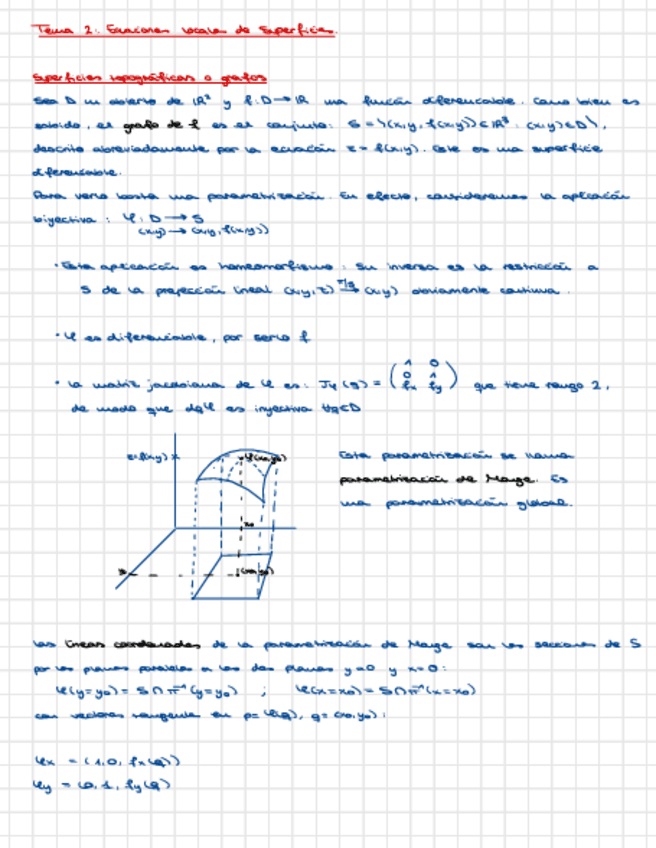 Tema 2: Ecuaciones locales de Superficies.
Superficies topográficas o grafos
Sea D un abierto de ℝ² y f: D → ℝ una función diferenciable. Como bien es
sabido, el grafo de f es el conjunto: S = {(x,y, f(x,y)) ∈ ℝ³ : (x,y) ∈ D},
descrito abreviadamente por la ecuación z = f(x,y). Este es una superficie
diferenciable.
Para verlo basta una parametrización. En efecto, consideremos la aplicación
biyectiva : φ: D → S
(x,y) → (x,y, f(x,y))
· Esta aplicación es homeomorfismo: Su inversa es la restricción a
S de la proyección lineal (x,y,z) → (x,y) obviamente continua.
· φ es diferenciable, por serlo f
· La matriz jacobiana de φ es: Jφ(q) = (1 0 que tiene rango 2,
0 1
fx fy)
de modo que dqφ es inyectiva ∀q∈D
z=f(x,y) φ(x0,y0)
Esta parametrización se llama
parametrización de Monge. Es
una parametrización global.
(x0,y0)
Las líneas coordenadas de la parametrización de Monge son las secciones de S
por los planos paralelos a los dos planos y=0 y x=0:
φ(y=y0) = S ∩ π⁻¹(y=y0) ; φ(x=x0) = S ∩ π⁻¹(x=x0)
con vectores tangente en p = φ(q), q = (x0,y0):
φx = (1,0, fx(q))
φy = (0,1, fy(q))